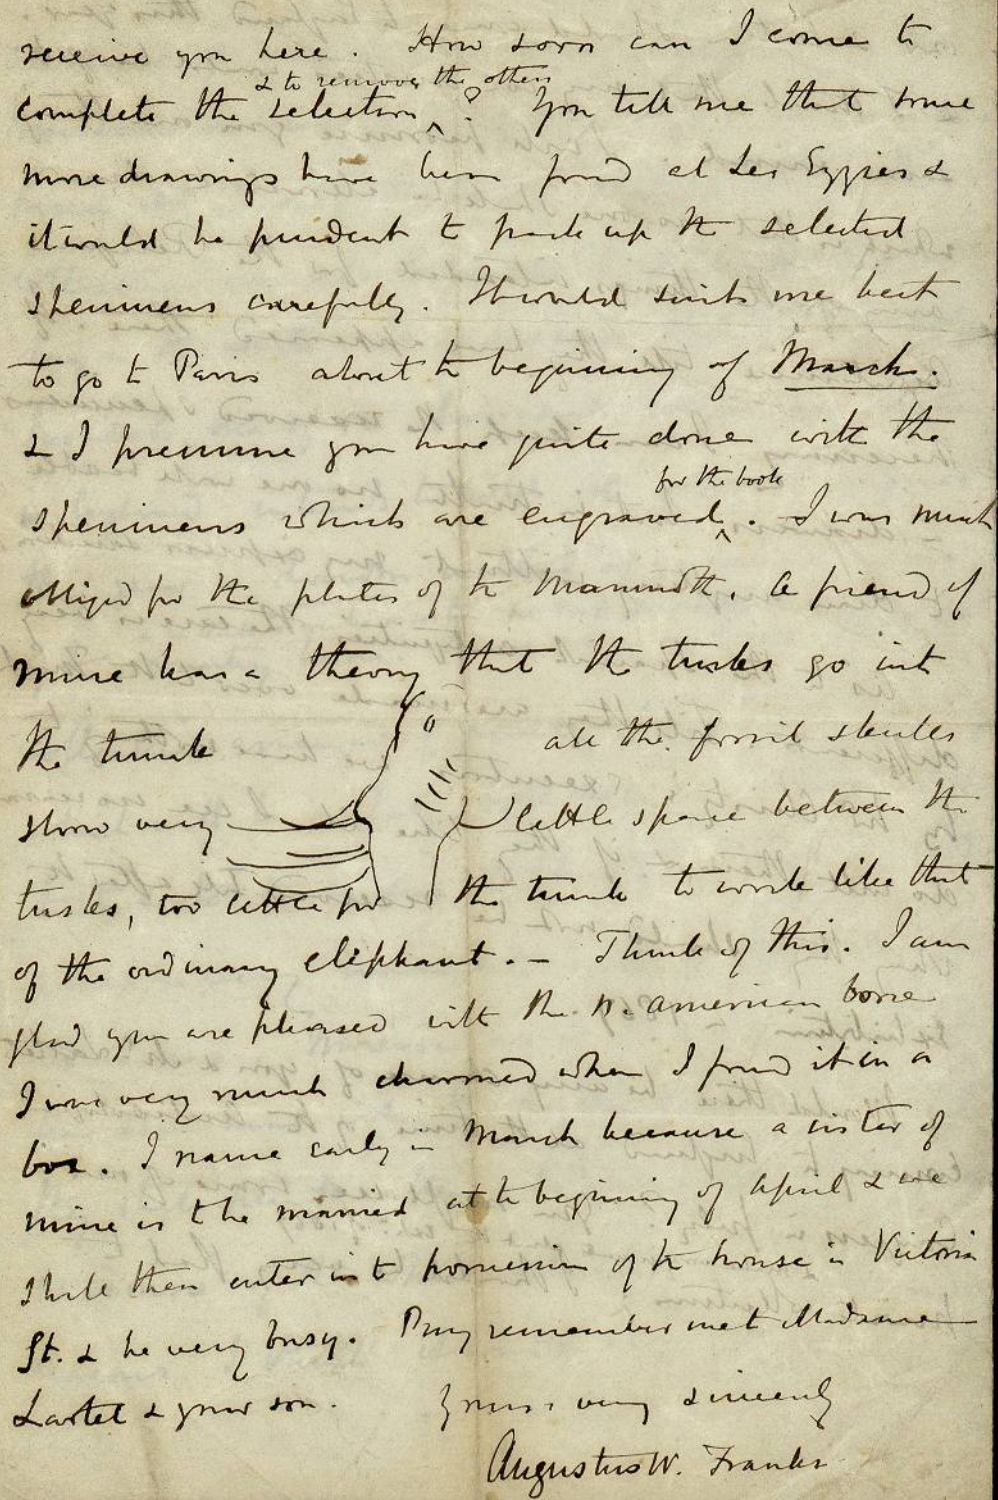 receive you here. How soon can I come to
& to remove the others
complete the selection ^ ? You tell me that some
more drawings have been found at Les Eyzies &
it would be prudent to pack up the selected
specimens carefully. It would suit me best
to go to Paris about the beginning of March.
& I presume you have quite done with the
for the book
specimens which are engraved ^. I was much
obliged for the plates of the Mammoth. A friend of
mine has a theory that the tusks go into
the trunk all the fossil skulls
show very little space between the
tusks, too little for the trunk to work like that
of the ordinary elephant. — Think of this. I am
glad you are pleased with the N. American bone
I was very much charmed when I found it in a
box. I name early in March because a sister of
mine is to be married at the beginning of April & we
shall then enter into possession of the house in Victoria
St. & be very busy. Pray remember me to Madame
Lartet & your son. Yours very sincerely
Augustus W. Franks